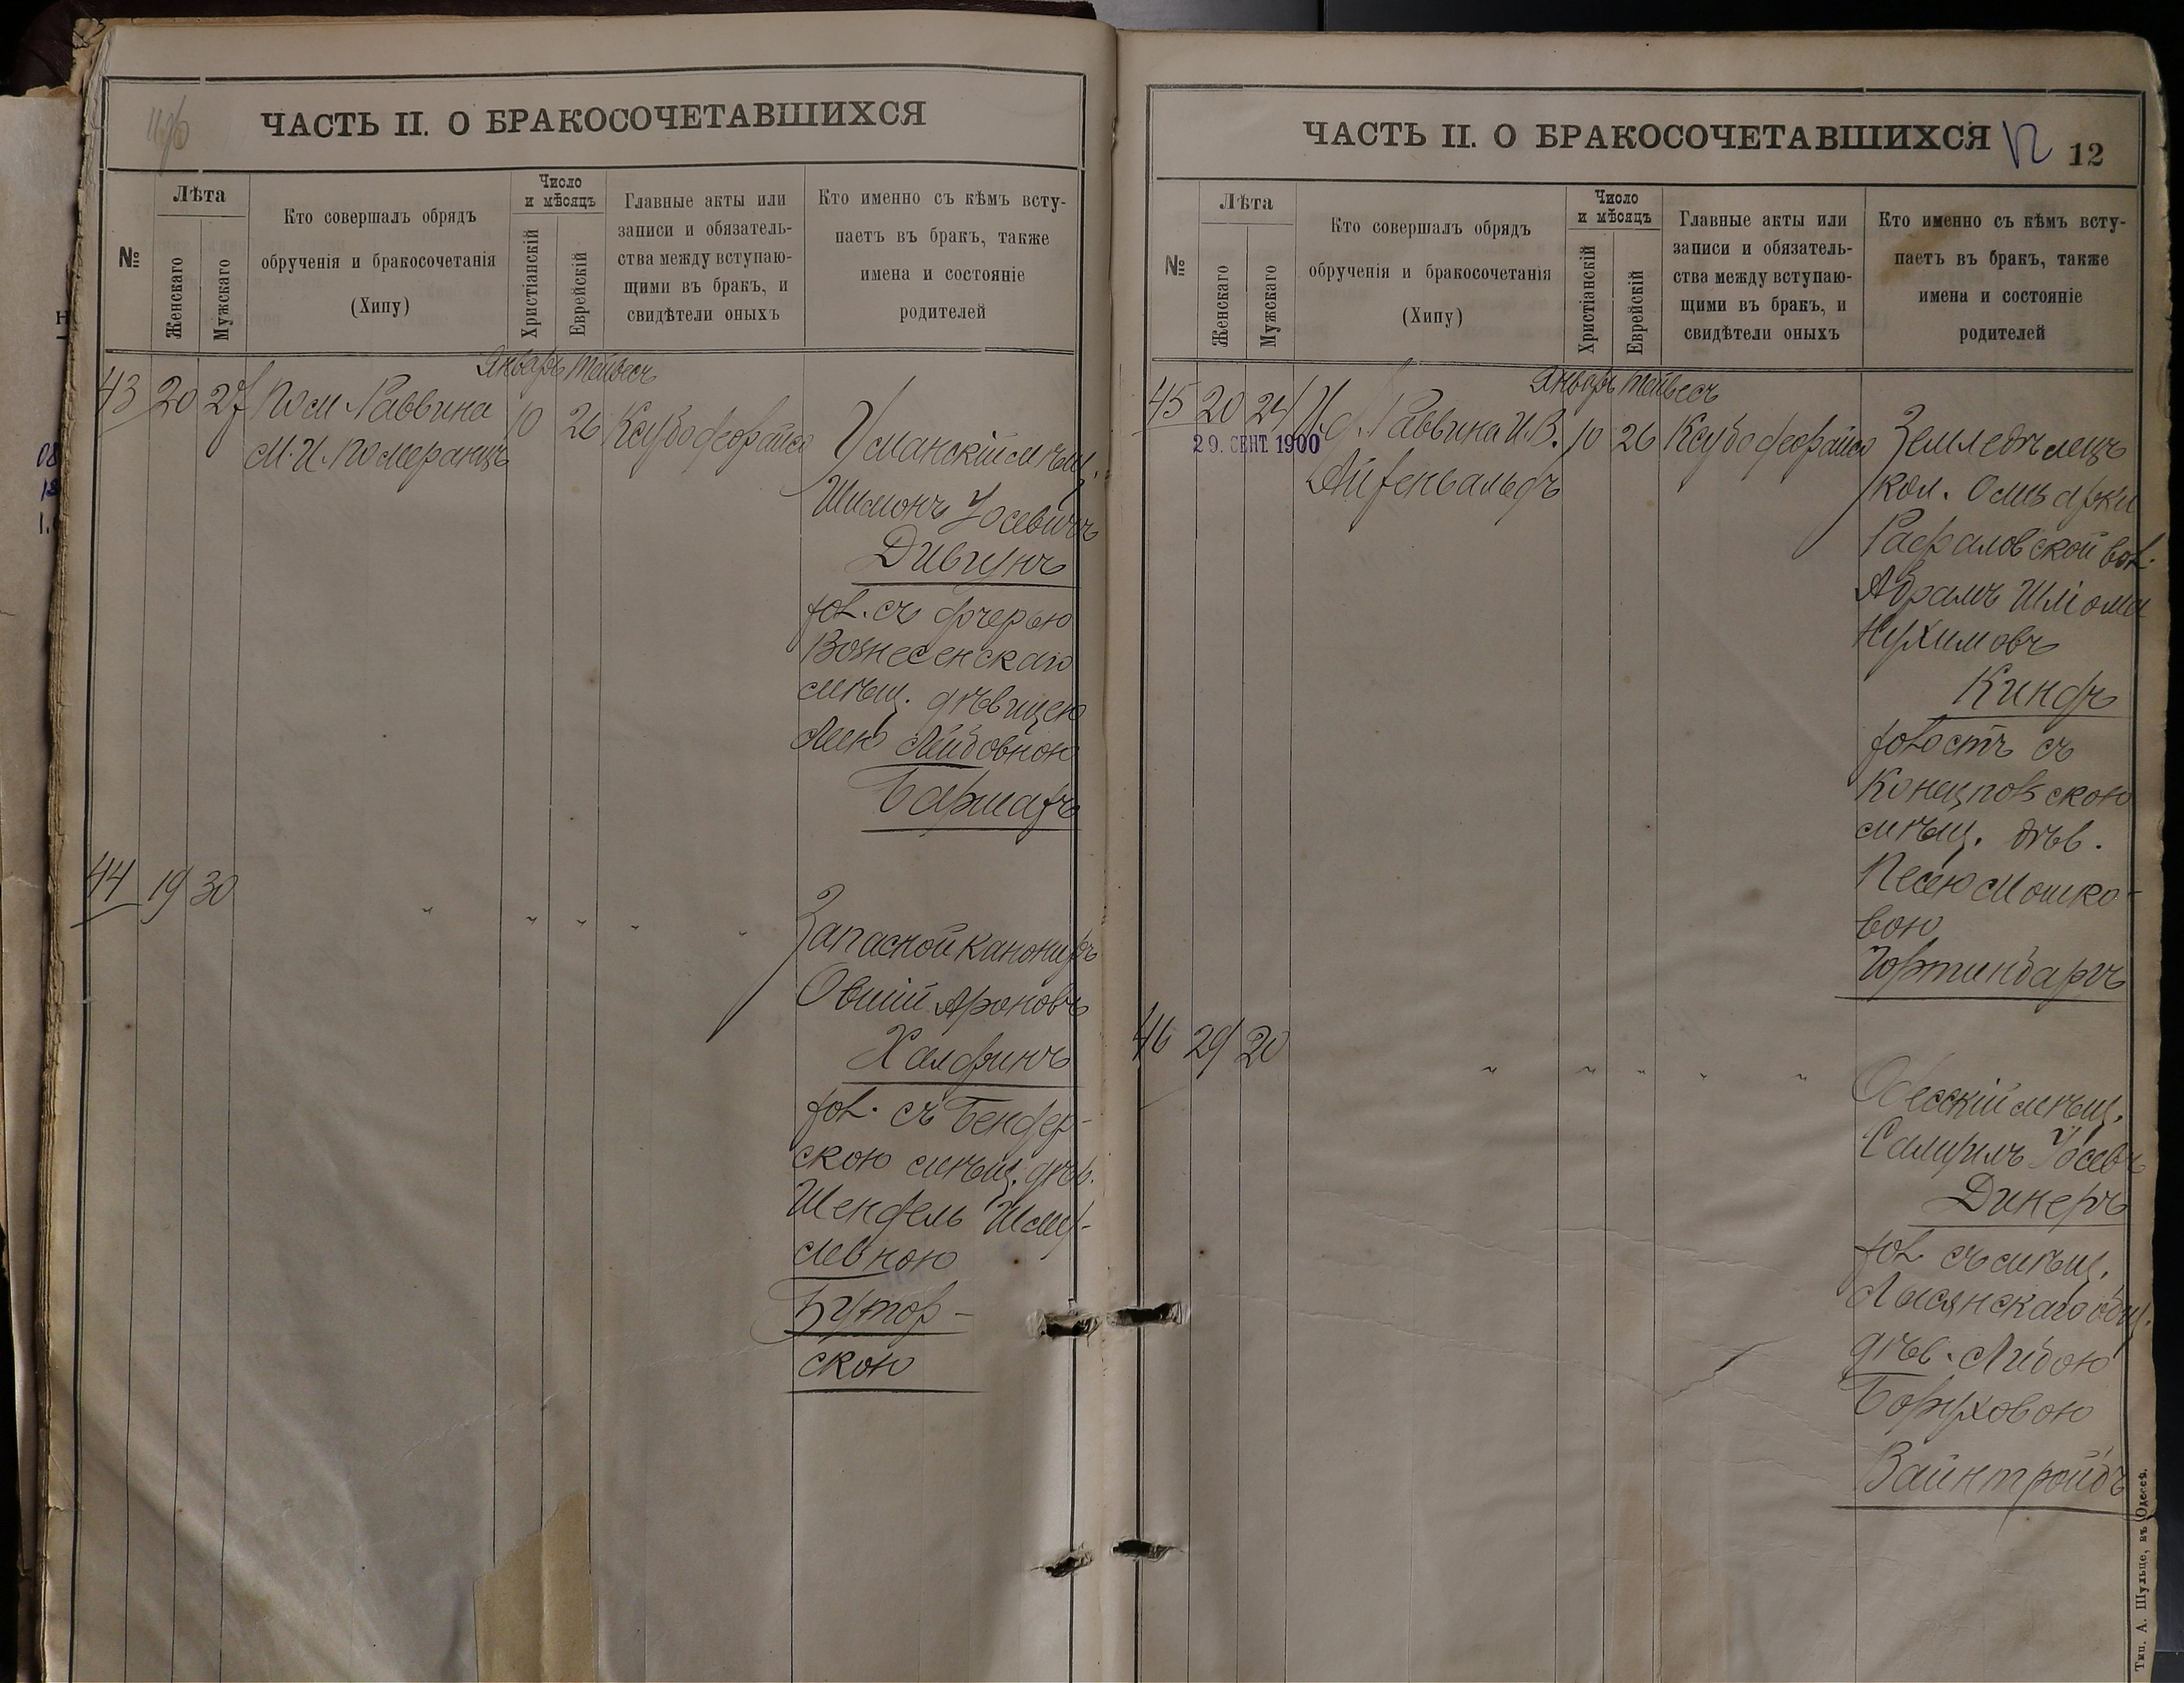 ЧАСТЬ II. О БРАКОСОЧЕТАВШИХСЯ
№
Лѣта
Женскаго
Мужскаго
Кто совершалъ обрядъ
обрученія и бракосочетанія
(Хипу)
Число
и мѣсяцъ
Христіанскій
Еврейскій
Главные акты или
записи и обязатель-
ства между вступаю-
щими въ бракъ, и
свидѣтели оныхъ
Кто именно съ кѣмъ всту-
паетъ въ бракъ, также
имена и состояніе
родителей
Январь Тейвесъ
43 20 27 Пом. Раввина 10 26
М. И. Померанцъ
Уманскій мѣщ.
Шимонъ Іосевичъ
Дивчунъ
хол. съ дочерью
Вознесенскаго
мѣщ. дѣвицею
Леею Лейбовною
Баршахъ
44 19 30 " " " " "
Запасной канониръ
Овший Ароновъ
Халфинъ
хол. съ Бендер-
скою мѣщ. дѣв.
Шендель Шму-
левною
Бутор-
скою
ЧАСТЬ II. О БРАКОСОЧЕТАВШИХСЯ
12
12
№
Лѣта
Женскаго
Мужскаго
Кто совершалъ обрядъ
обрученія и бракосочетанія
(Хипу)
Число
и мѣсяцъ
Христіанскій
Еврейскій
Главные акты или
записи и обязатель-
ства между вступаю-
щими въ бракъ, и
свидѣтели оныхъ
Кто именно съ кѣмъ всту-
паетъ въ бракъ, также
имена и состояніе
родителей
Январь Тейвесъ
45 20 24 И. д. Раввина И. В. 10 26
29. СЕНТ. 1900
Айзенвальдъ
Земледѣлецъ
кол.
Абрамъ Шліома
Нухимовъ
Киндъ
холостъ съ
Конецповскою
мѣщ. дѣв.
Песею Мошко-
вою
Гортинбаргъ
46 29 20 " " " " "
Одесскій мѣщ.
Іосевъ
Динеръ
хол. съ мѣщ.
Лысянскаго общ.
дѣв. Либою
Боруховою
Вайнтройбъ
Тип. А. Шульце, въ Одессѣ.